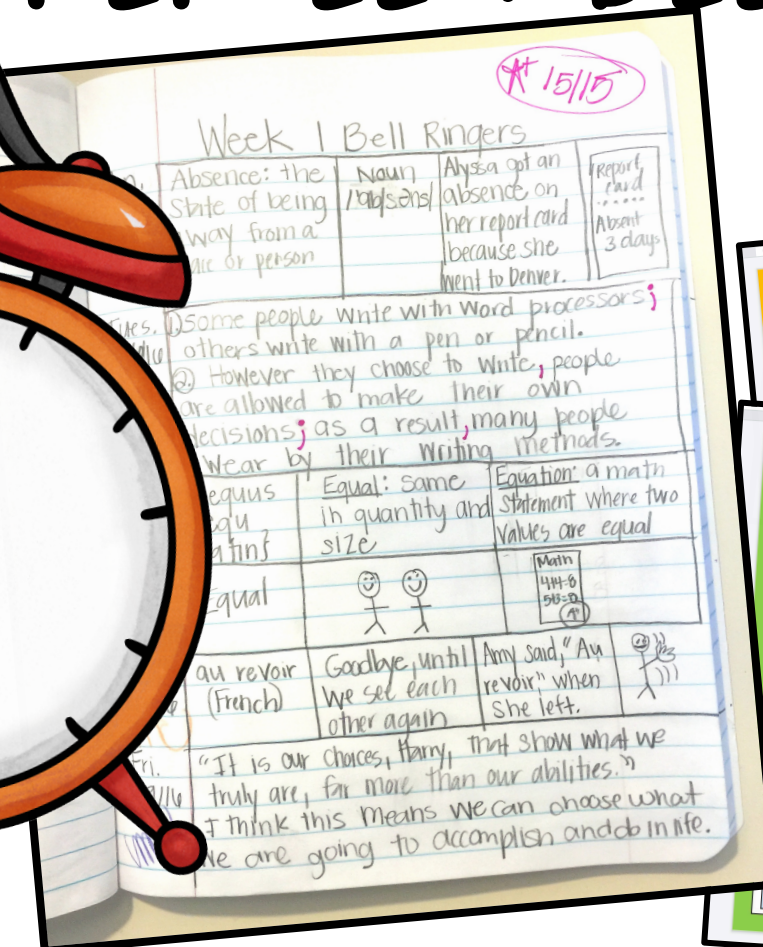 A+ 15/15
Week 1 Bell Ringers
Absence: the
state of being
away from a
or person
Noun
Alyssa got an
absence on
her report card
because she
went to Denver.
Report
card
Absent
3 days
Tues.
① Some people write with word processors;
others write with a pen or pencil.
②. However they choose to write, people
are allowed to make their own
decisions; as a result, many people
wear by their writing methods.
equus
equ
Equal: same
in quantity and
size
Equation: a math
statement where two
values are equal
Equal
Math
4+4=8
A+
au revoir
(French)
Goodbye, until
we see each
other again
Amy said, "Au
revoir," when
she left.
Fri.
"It is our choices, Harry, that show what we
truly are, far more than our abilities."
I think this means we can choose what
we are going to accomplish and do in life.